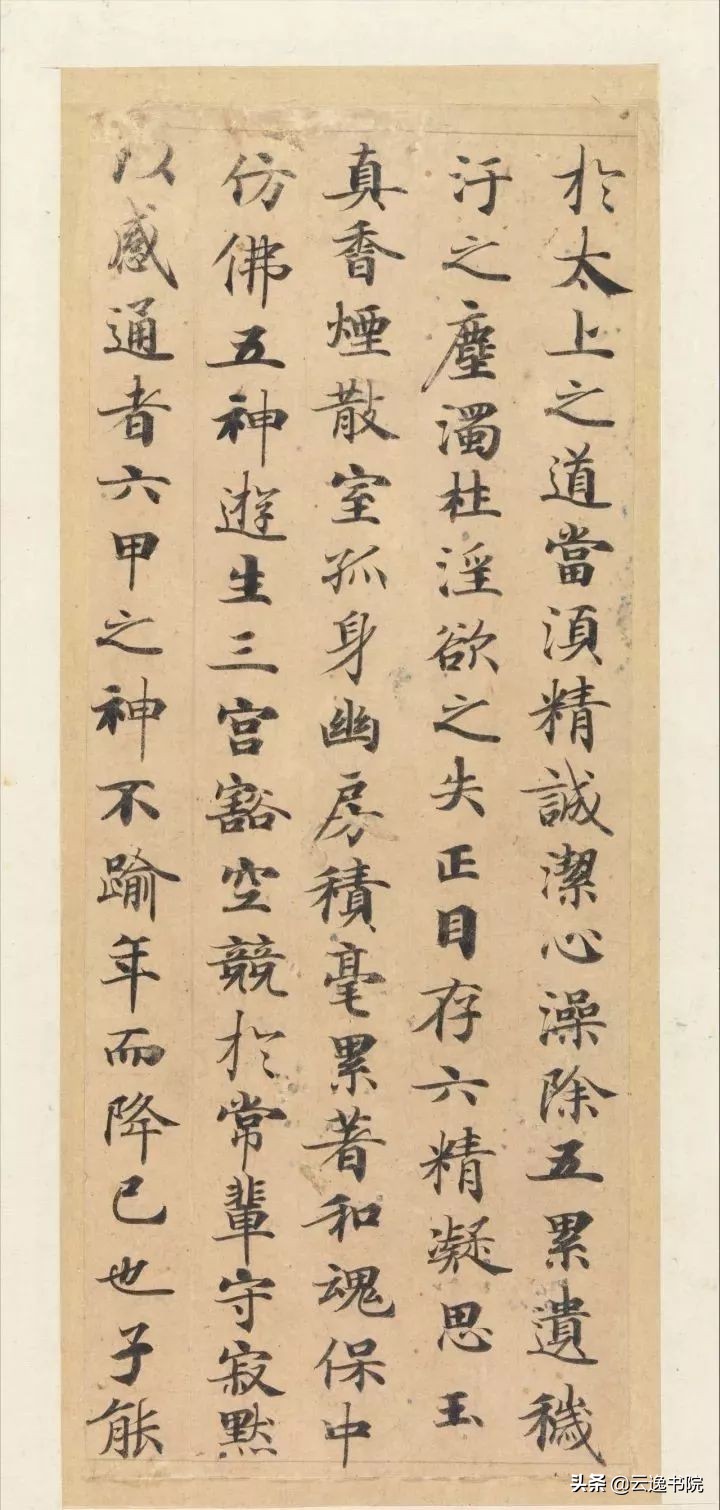 於太上之道當湏精誠潔心澡除五累遺穢
汙之塵濁杜淫欲之失正目存六精凝思玉
真香煙散室孤身幽房積毫累著和魂保中
仿佛五神遊生三宫豁空競於常輩守寂默
以感通者六甲之神不踰年而降己也子能
头条 @云逸书院